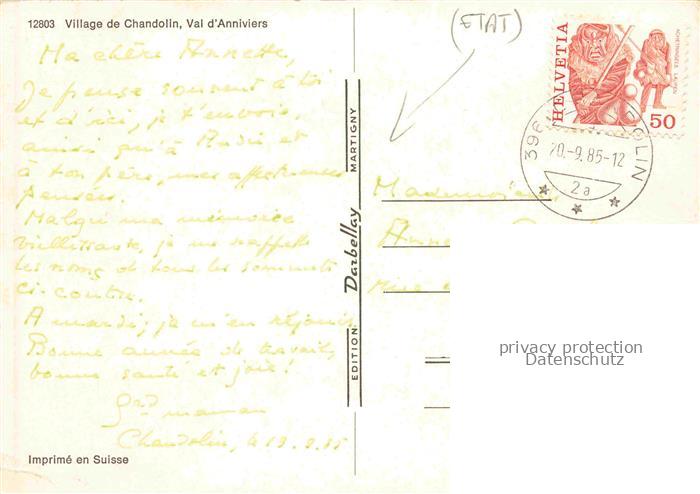 12803 Village de Chandolin, Val d'Anniviers
(ETAT)
HELVETIA
ACHETRINGELE LAUPEN
50
20.-9.85-12
2a
Ma chère Annette,
Je pense souvent à toi
et d'ici, je t'envoie,
ainsi qu'à André et
à ton père, mes affectueuses
pensées.
Malgré ma mémoire
vieillissante, je me rappelle
les noms de tous les sommets
ci-contre.
A mardi, je m'en réjouis.
Bonne année de travail,
bonne santé et joie!
Grd maman
Chandolin, le 19.9.85
EDITION Darbellay MARTIGNY
Mademoiselle
Anne
privacy protection
Datenschutz
Imprimé en Suisse